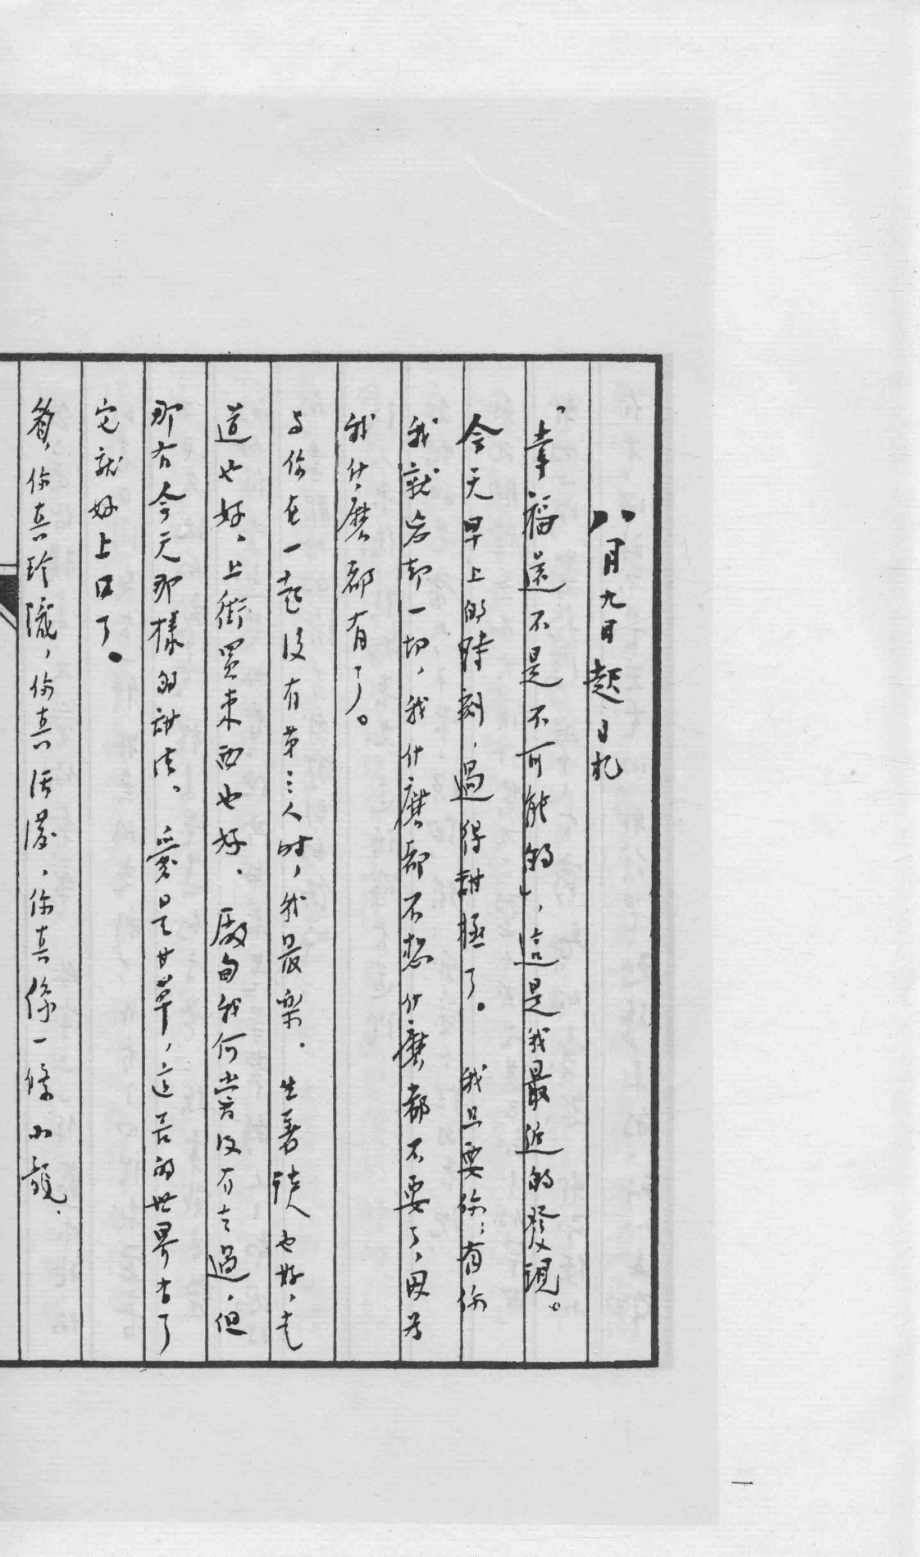 八月九日起日札
「幸福還不是不可能的」，這是我最近的發現。
今天早上的時刻，過得甜極了。我只要你；有你
我就忘却一切，我什麽都不想什麽都不要了，因为
我什麽都有了。
与你在一起没有第三人时，我最樂。坐著談也好，走
道也好，上街買東西也好。厰甸我何嘗没有去過，但
那有今天那樣的甜法。爱是甘草，这苦的世界有了
它就好上口了。
眉，你真玲瓏，你真活潑，你真像一條小龍。
一